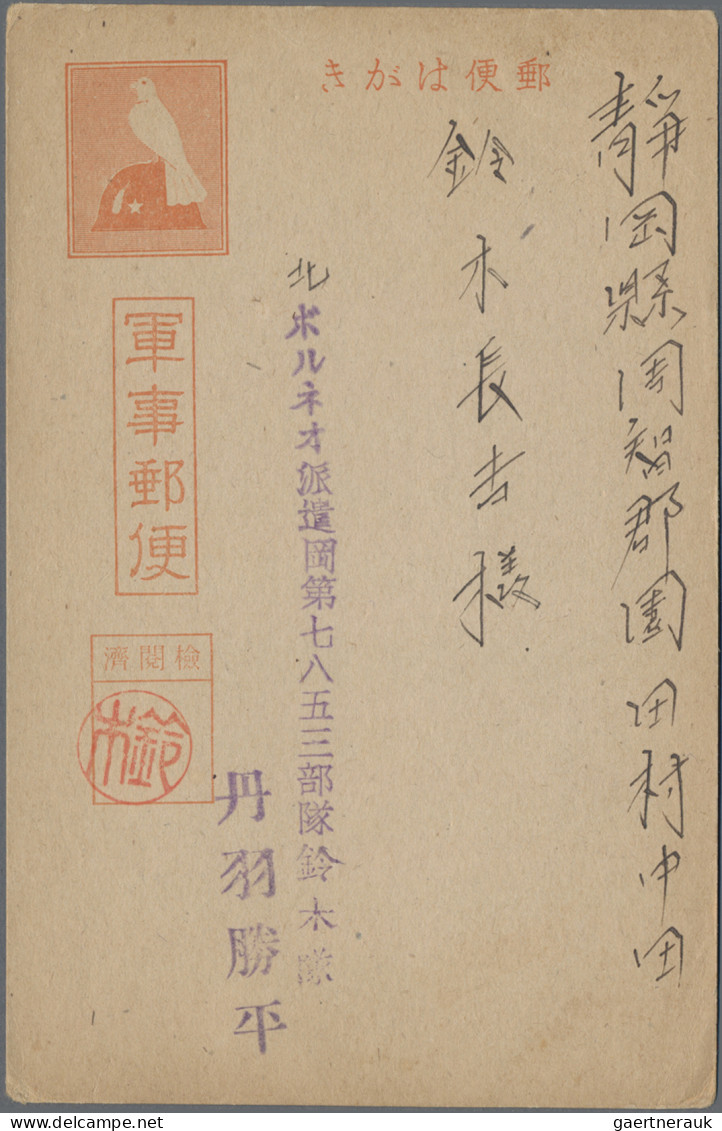 郵便はがき
靜岡縣周智郡園田村中田
鈴木長吉様
北ボルネオ派遣岡第七八五三部隊鈴木隊
丹羽勝平
軍事郵便
檢閲濟
鈴木
gaertnerauk